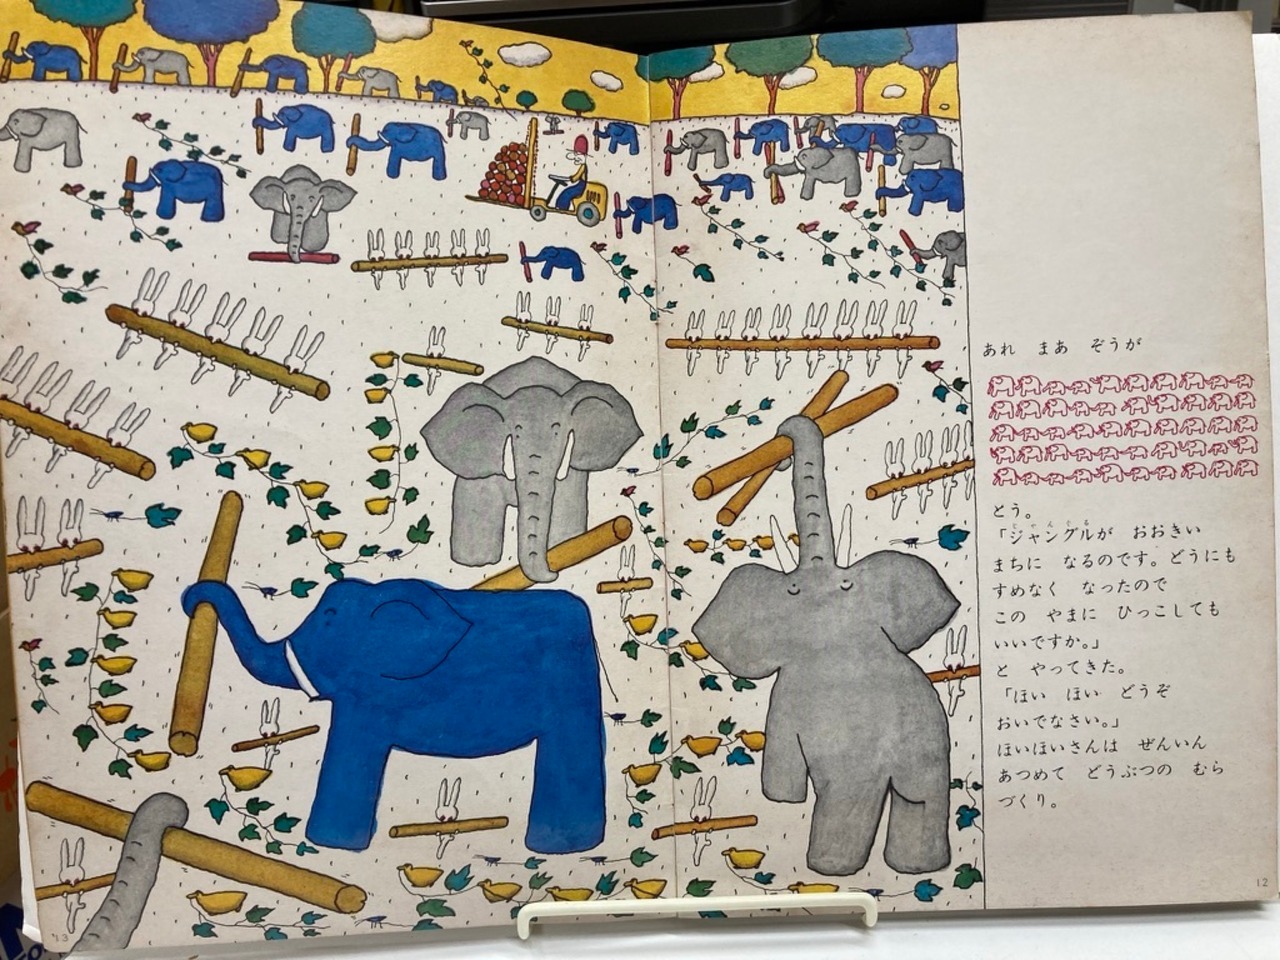 あれ　まあ　ぞうが
とう。
「ジャングルが　おおきい
まちに　なるのです。どうにも
すめなく　なったので
この　やまに　ひっこしても
いいですか。」
と　やってきた。
「ほい　ほい　どうぞ
おいでなさい。」
ほいほいさんは　ぜんいん
あつめて　どうぶつの　むら
づくり。
12
13